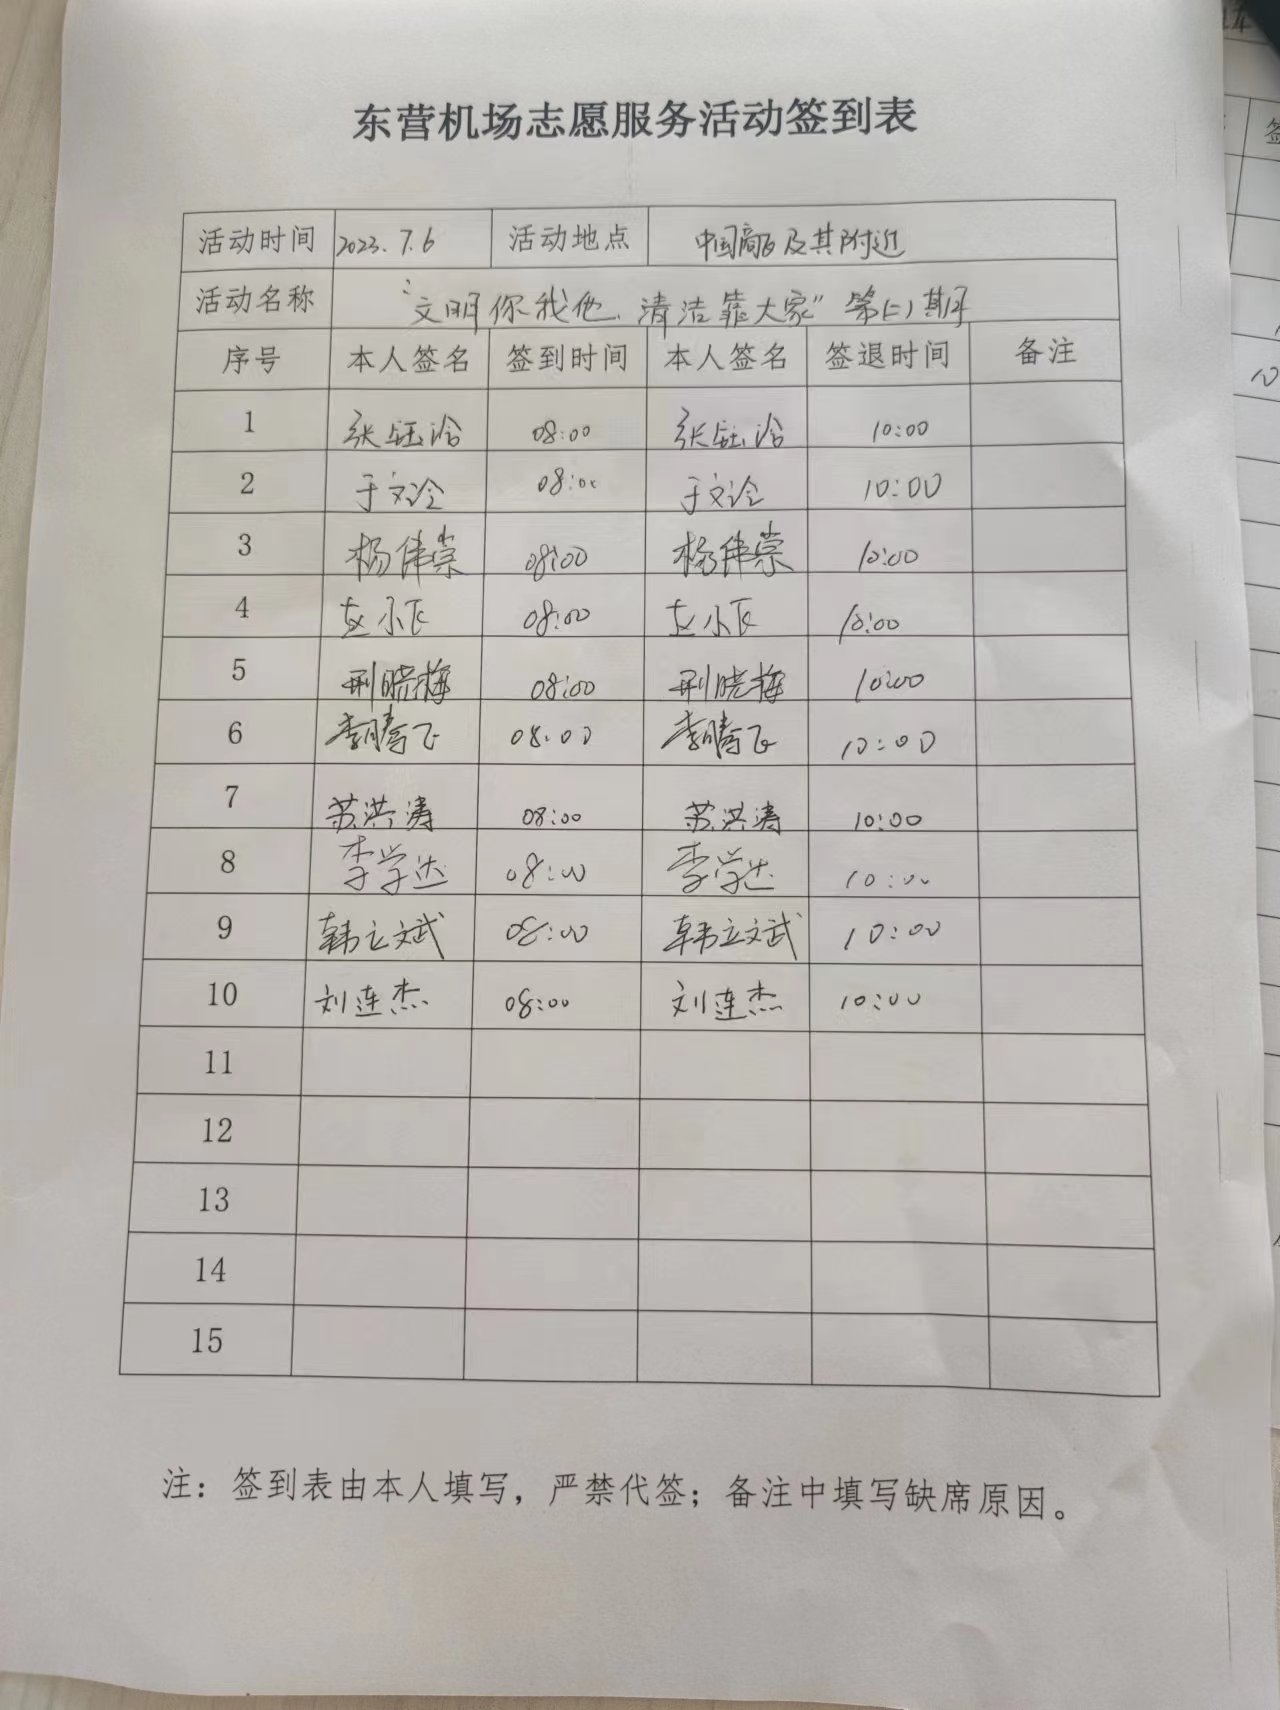 东营机场志愿服务活动签到表
活动时间 2023.7.6 活动地点 中国商飞及其附近
活动名称 “文明你我他、清洁靠大家”第(七)期
序号 本人签名 签到时间 本人签名 签退时间 备注
1 张钰涵 08:00 张钰涵 10:00
2 于文泠 08:00 于文泠 10:00
3 杨伟崇 08:00 杨伟崇 10:00
4 赵小飞 08:00 赵小飞 10:00
5 荆晓梅 08:00 荆晓梅 10:00
6 李腾飞 08:00 李腾飞 10:00
7 苏洪涛 08:00 苏洪涛 10:00
8 李学达 08:00 李学达 10:00
9 韩立斌 08:00 韩立斌 10:00
10 刘连杰 08:00 刘连杰 10:00
11
12
13
14
15
注：签到表由本人填写，严禁代签；备注中填写缺席原因。